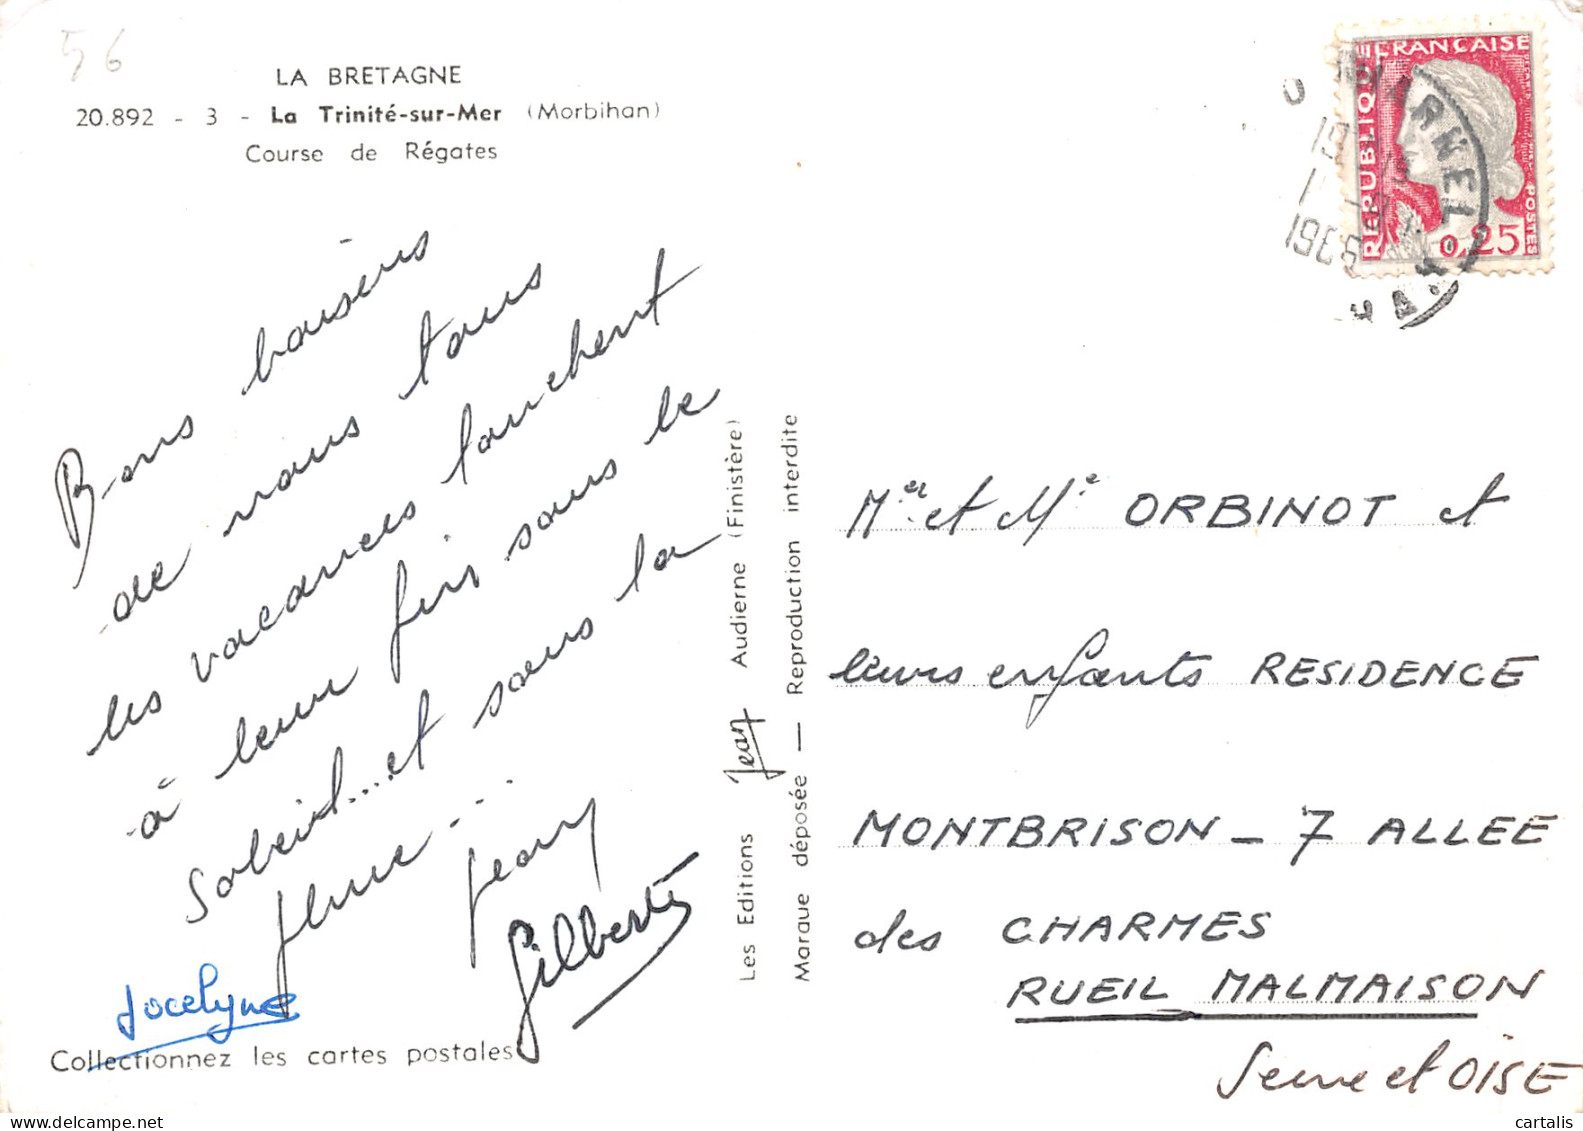 56
LA BRETAGNE
20.892 - 3 - La Trinité-sur-Mer (Morbihan)
Course de Régates
Bons baisers
de nous tous
les vacances touchent
à leur fin sous le
soleil...et sous la
pluie...
Jeany
Gilberte
Jocelyne
Collectionnez les cartes postales
Les Editions Jean Audierne (Finistère)
Marque déposée — Reproduction interdite
REPUBLIQUE FRANÇAISE
POSTES
0,25
CARNEL
Mer et Me ORBINOT et
leurs enfants RESIDENCE
MONTBRISON - 7 ALLEE
des CHARMES
RUEIL MALMAISON
Seine et OISE
cartalis